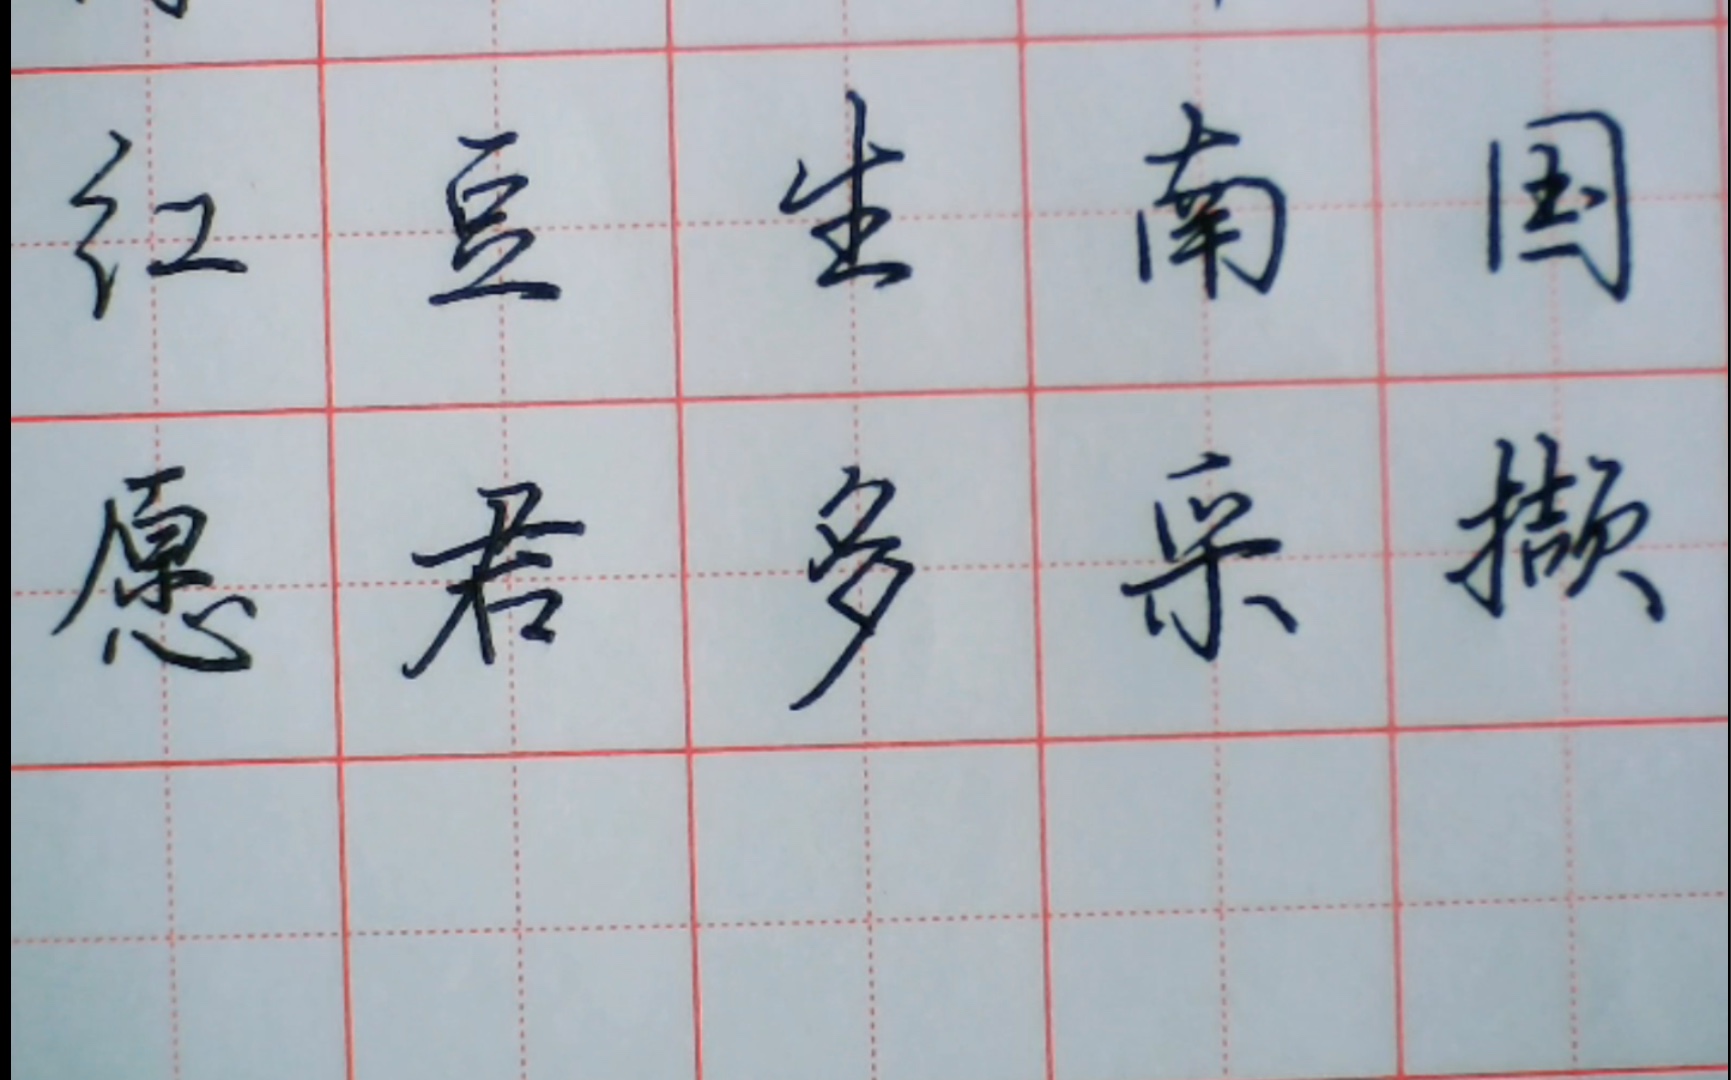 红豆生南国
愿君多采撷